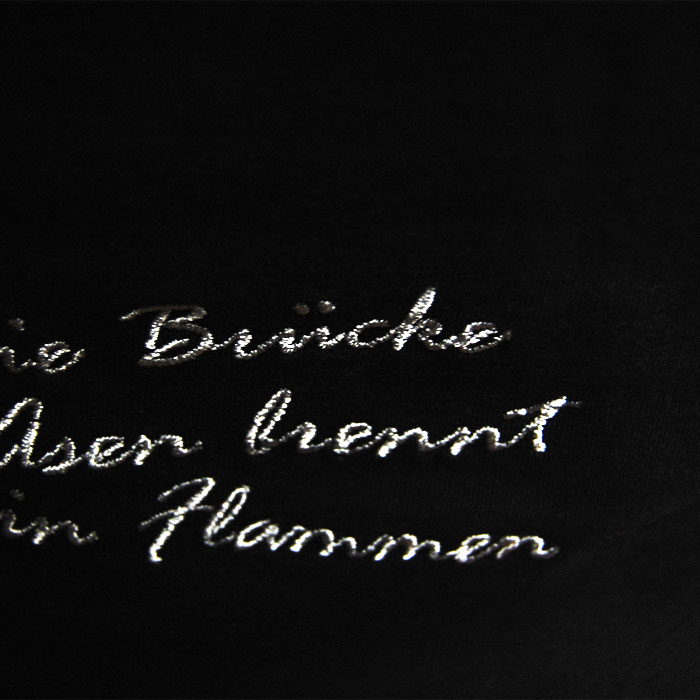 ie Brücke
Asen brennt
in Flammen